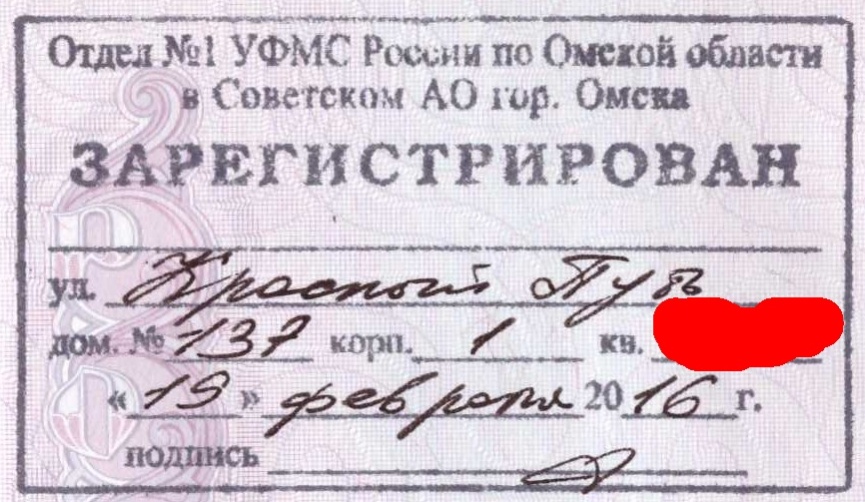 Отдел №1 УФМС России по Омской области
в Советском АО гор. Омска
ЗАРЕГИСТРИРОВАН
ул. Красный Путь
дом. № 137 корп. 1 кв.
« 19 » февраля 2016 г.
подпись